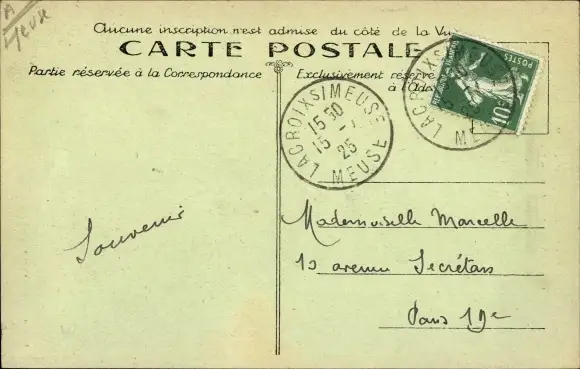 A
Meuse
Aucune inscription n'est admise du côté de la Vu
CARTE POSTALE
Partie réservée à la Correspondance
Exclusivement réservé
à l'Ad
LACROIX S/MEUSE
15 30
15 -
25
MEUSE
LACROIX S
M
POSTES
10
Souvenir
Mademoiselle Marcelle
10 avenue Secrétan
Paris 19e